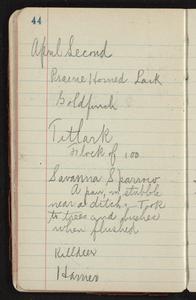 44
April Second
Prairie Horned Lark
Goldfinch
Titlark
Flock of 100
Savanna Sparrow
A pair, in stubble
near a ditch. Took
to trees and bushes
when flushed
Killdeer